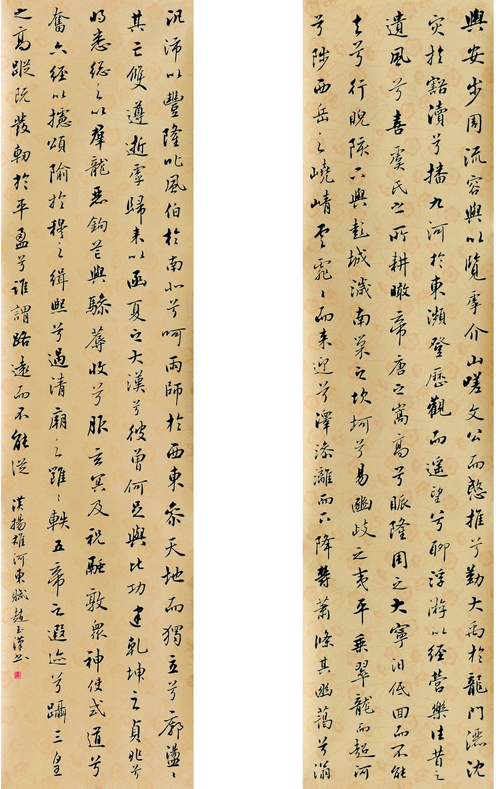 輿安步周流容與以覽虖介山嗟文公而愍推兮勤大禹於龍門灑沈
灾於豁瀆兮播九河於東瀕登歷觀而遙望兮聊浮游以經營樂往昔之
遺風兮喜虞氏之所耕瞰帝唐之嵩高兮脈隆周之大寧汩低回而不能
去兮行睨陔下與彭城濊南巢之坎坷兮易豳歧之夷平乘翠龍而超河
兮陟西岳之嶢崝雲霏〻而來迎兮澤滲離而下降鬱蕭條其幽藹兮滃
汎沛以豐隆叱風伯於南北兮呵雨師於西東參天地而獨立兮廓盪〻
其亡雙遵逝虖歸來以函夏之大漢兮彼曾何足與比功建乾坤之貞兆兮
將悉總之以群龍麗鉤芒與驂蓐收兮服玄冥及祝融敦眾神使式道兮
奮六經以攄頌隃於穆之緝熙兮過清廟之雝〻軼五帝之遐迹兮躡三皇
之高蹤既發軔於平盈兮誰謂路遠而不能從 漢揚雄河東賦趙玉漢書